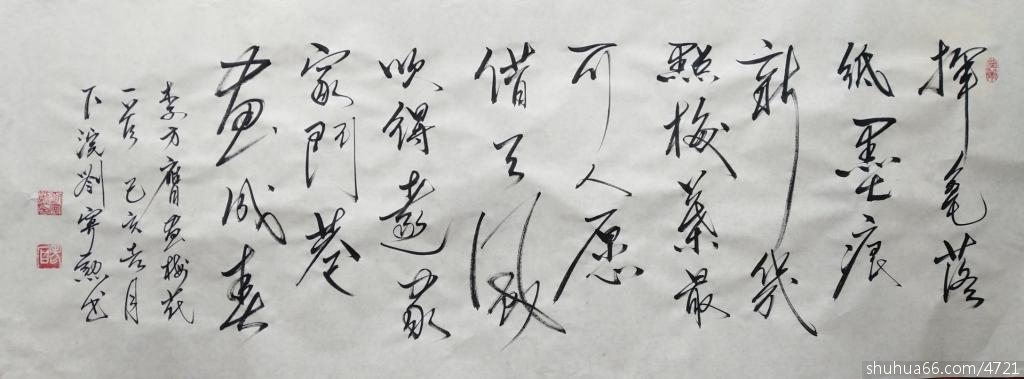 揮毫落
紙墨痕
新幾
點梅華最
可人愿
借天風
吹得遠家
家門巷
盡成春
李方膺畫梅花
一首 己亥月
下浣劉書
shuhua66.com/4721